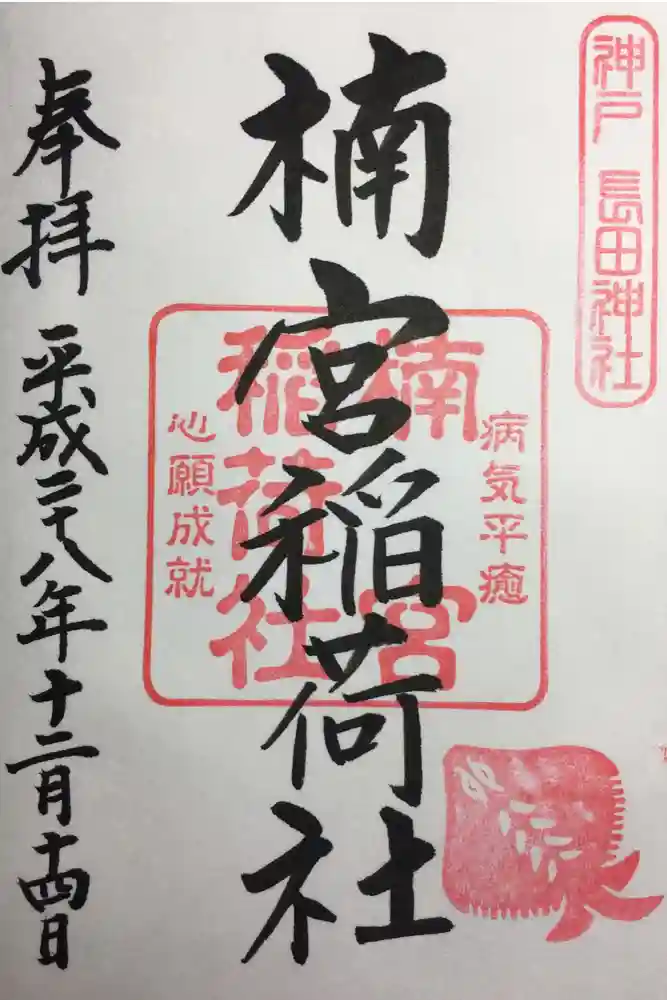 神戸 長田神社
楠宮稲荷社
病気平癒
楠宮
稲荷社
心願成就
奉拝
平成二十八年十二月十四日